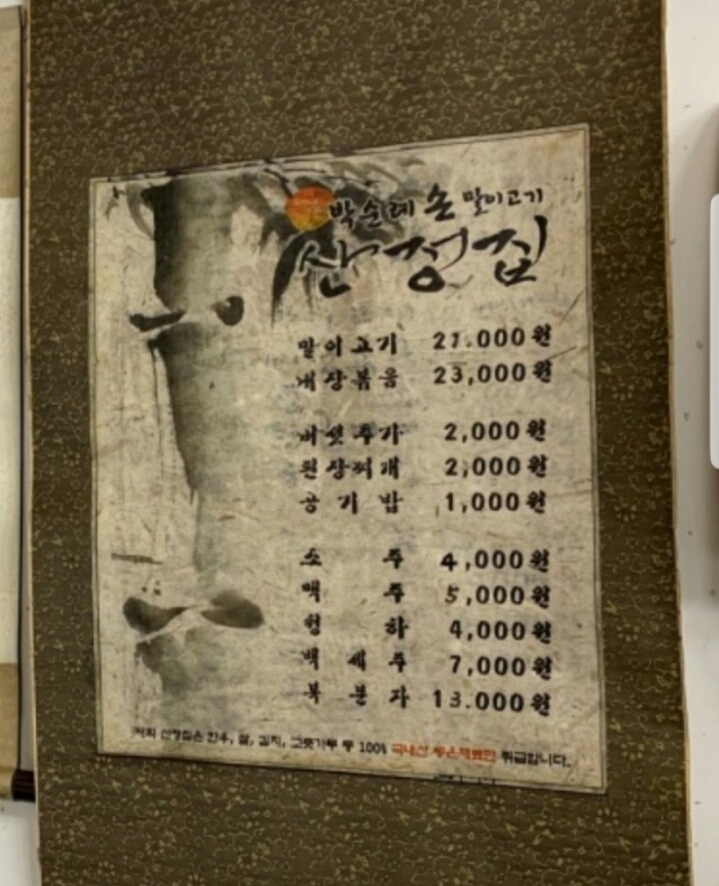 박순례 손 말이고기
산정집
말이고기 21.000원
내장볶음 23,000원
버섯추가 2,000원
된장찌개 2,000원
공기밥 1,000원
소주 4,000원
맥주 5,000원
청하 4,000원
백세주 7,000원
복분자 13.000원
저희 산정집은 한우, 쌀, 김치, 고춧가루 등 100% 국내산 좋은재료만 취급합니다.